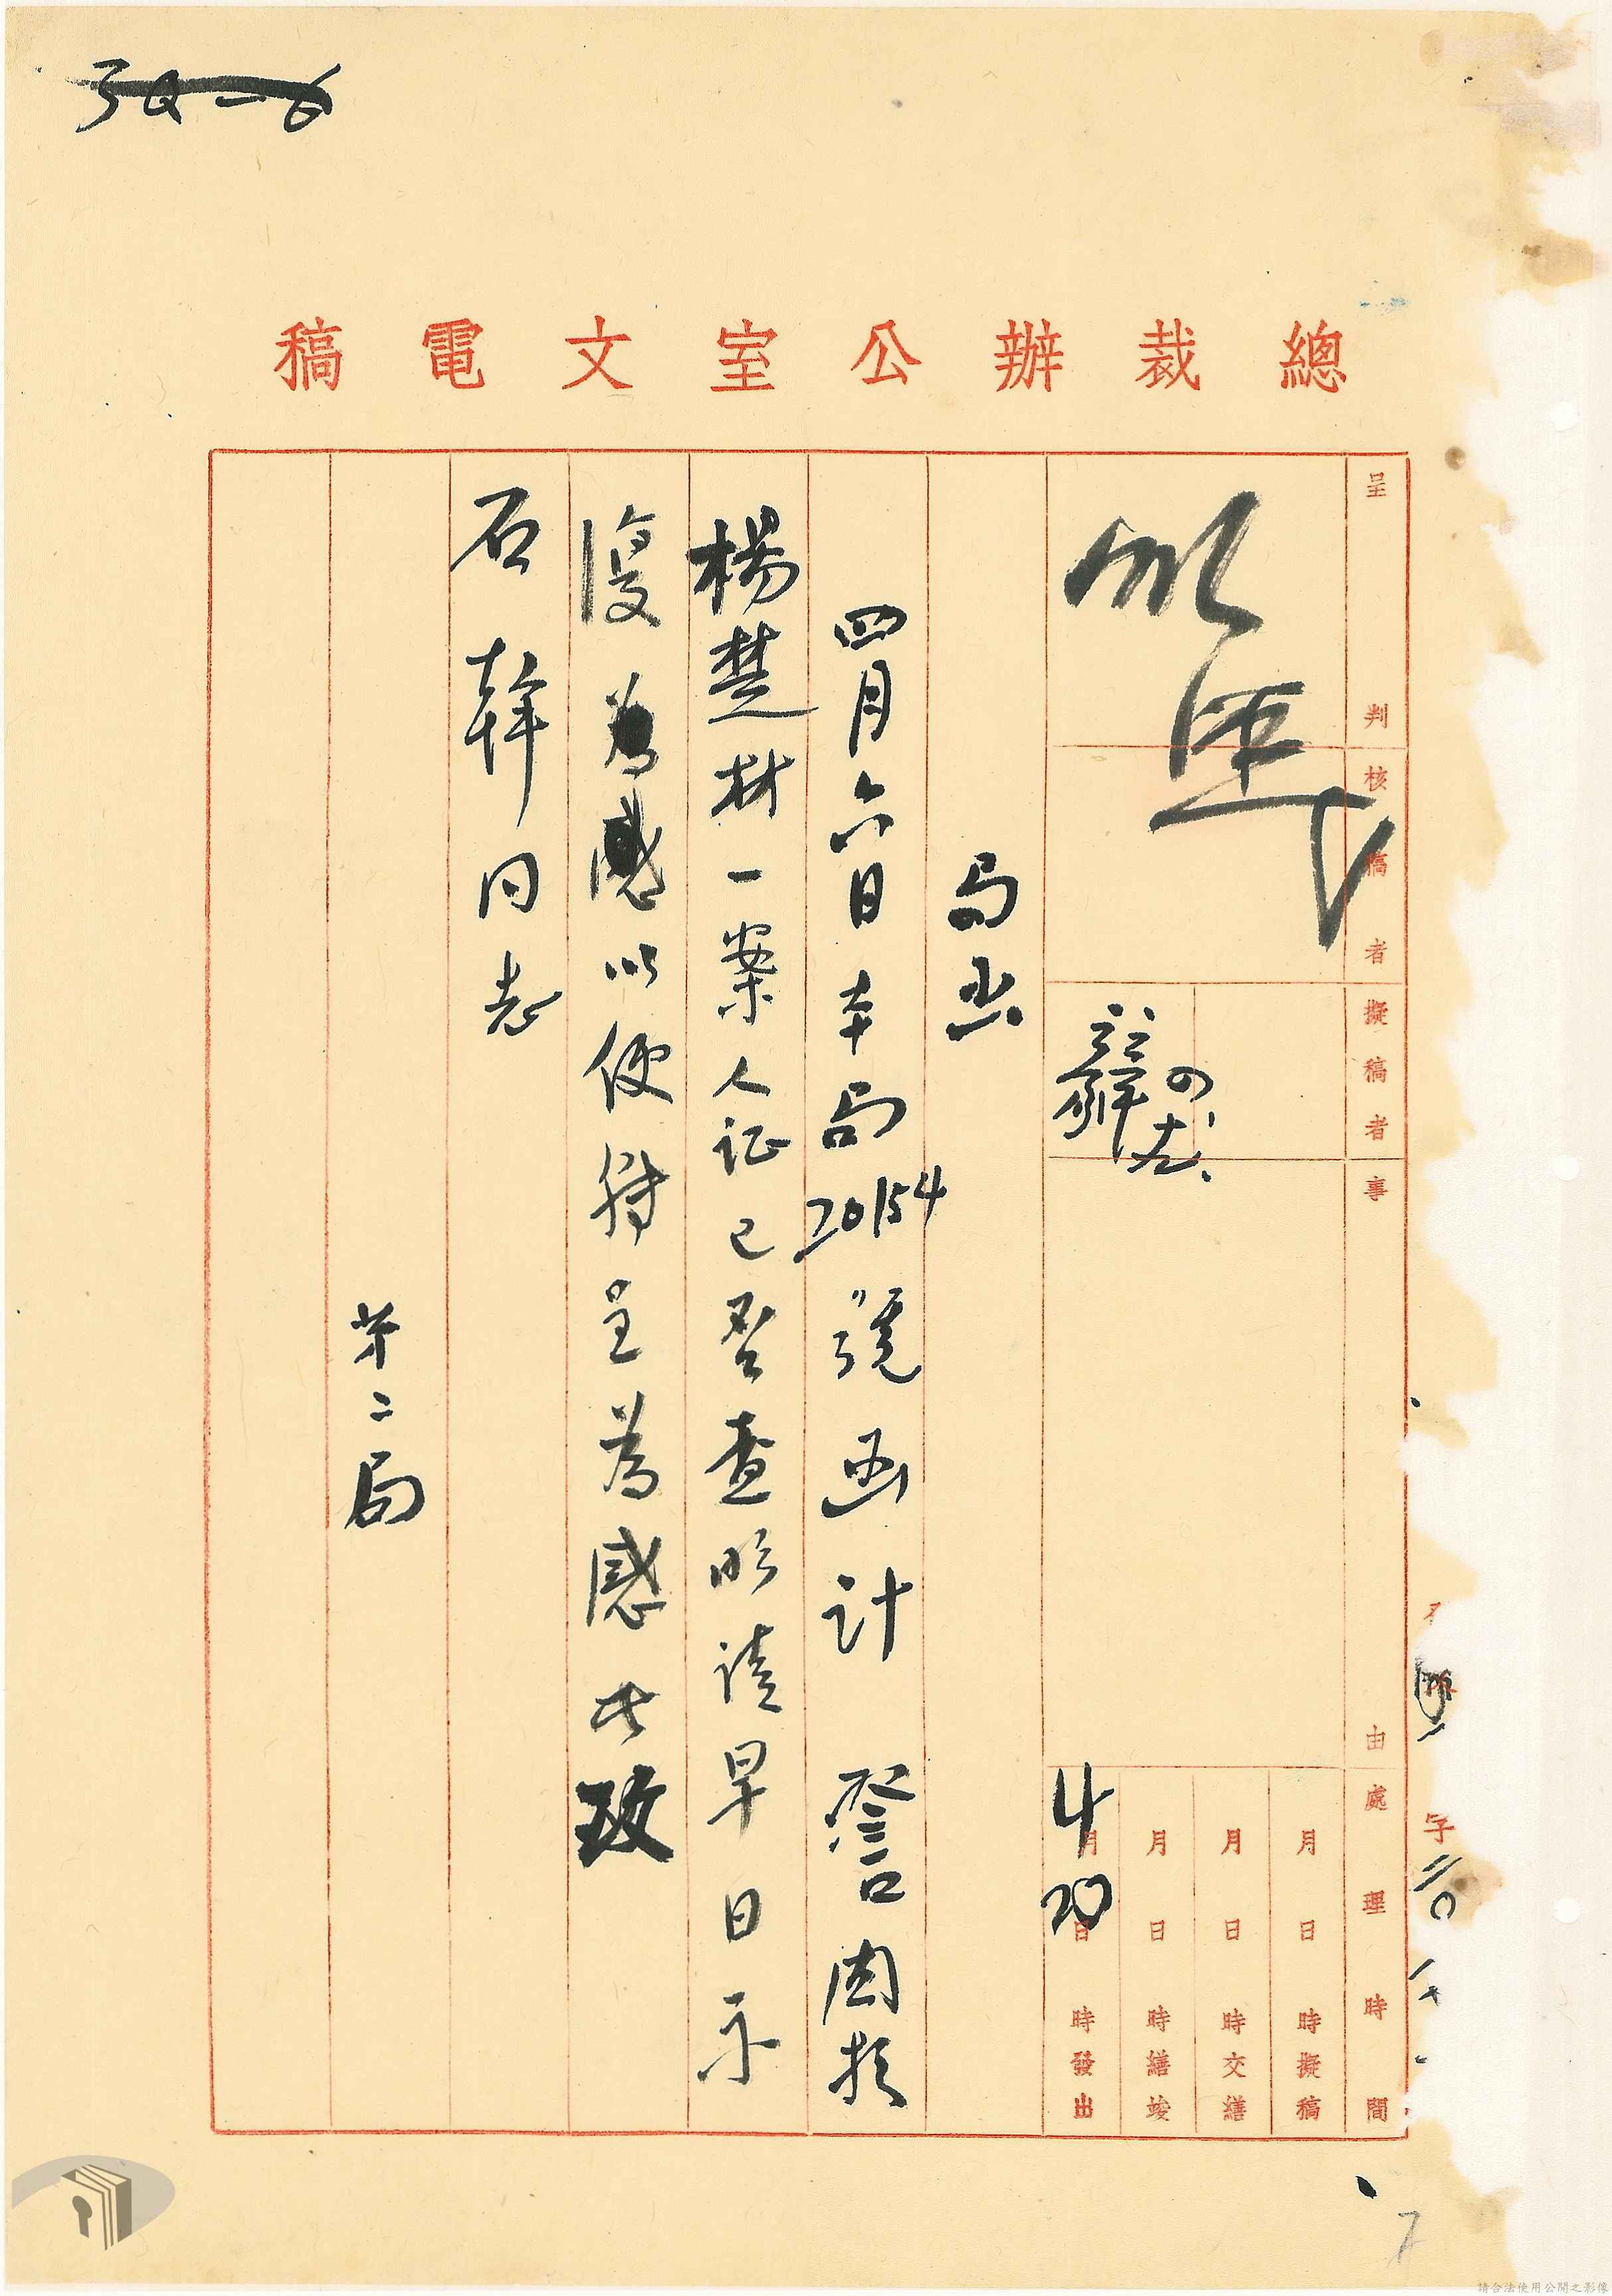 總裁辦公室文電稿
呈判
核稿者
擬稿者
事由
處理時間
月日時擬稿
月日時交繕
月日時繕竣
4月20日時發出
局函
四月六日本局20154號函計詧關於
楊楚材一案人证已否查明请早日示
復以便转呈為感此致
石幹同志
第二局
字
請合法使用公開之影像